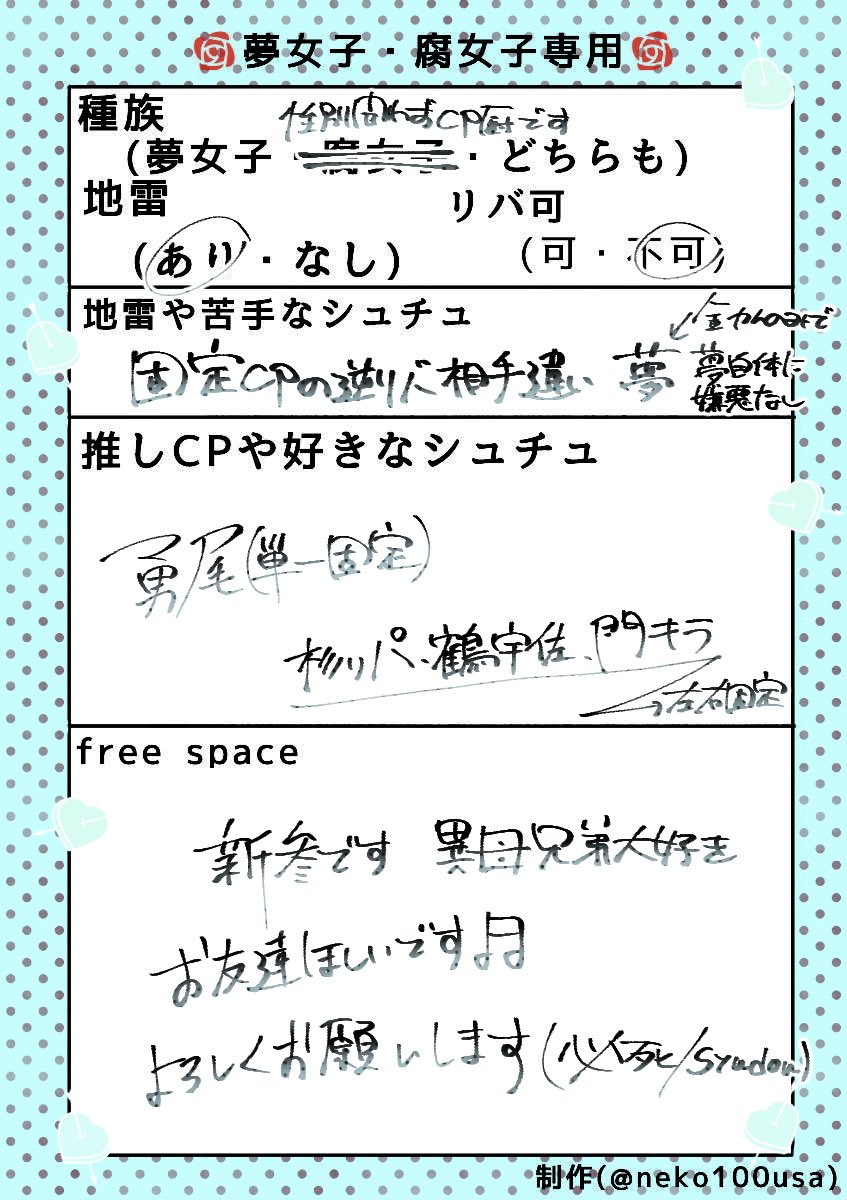 夢女子・腐女子専用
種族
性別問わずCP厨です
(夢女子・腐女子・どちらも)
地雷
リバ可
(あり・なし)
(可・不可)
地雷や苦手なシュチュ
固定CPの逆リバ相手違い 夢
↙金カムのみで
夢自体に
嫌悪なし
推しCPや好きなシュチュ
勇尾(単一固定)
杉リパ、鶴宇佐、門キラ
→左右固定
free space
新参です 異母兄弟大好き
お友達ほしいです♫
よろしくお願いします(必死/syudou)
制作(@neko100usa)